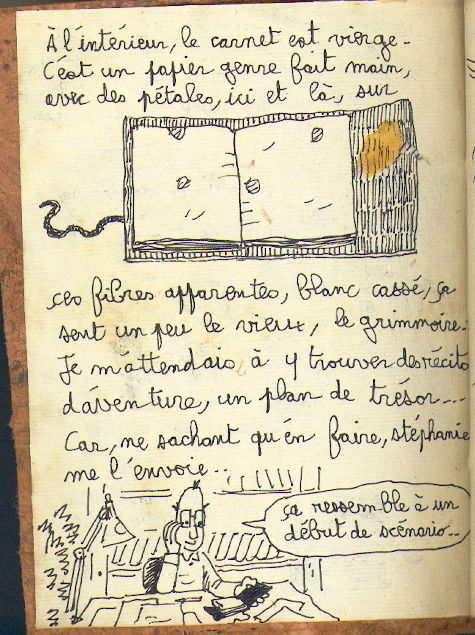 À l'intérieur, le carnet est vierge.
C'est un papier genre fait main,
avec des pétales, ici et là, sur
ces fibres apparentes, blanc cassé, ça
sent un peu le vieux, le grimmoire.
Je m'attendais à y trouver des récits
d'aventure, un plan de trésor....
Car, ne sachant qu'en faire, stéphanie
me l'envoie..
ça ressemble à un
début de scénario..